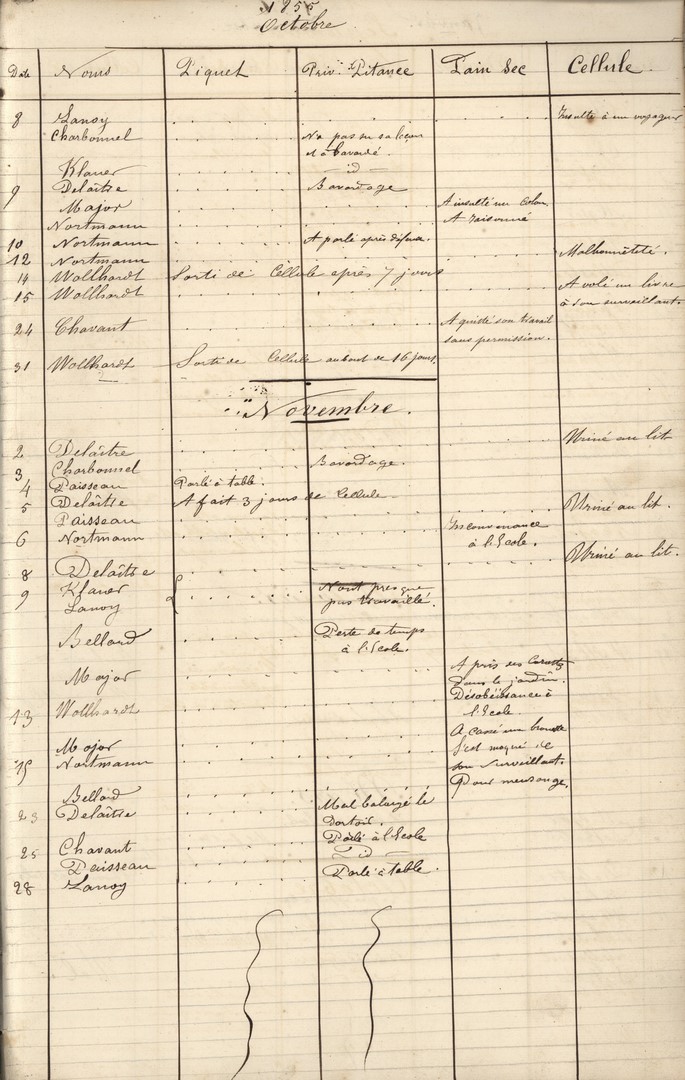 1855
Octobre
Date Noms Piquet Priv. Pitance Pain Sec Cellule
8 Lanoy Insulte à un voyageur
Charbonnel N'a pas su sa leçon
et a bavardé.
Klauer id
9 Delaître Bavardage
Major A insulté un Colon
Nortmann A raisonné
10 Nortmann A parlé après défense.
12 Nortmann Malhonnêteté.
14 Wollhardt Sorti de Cellule après 7 jours
15 Wollhardt A volé un livre
à son surveillant.
24 Chavant A quitté son travail
sans permission.
31 Wollhardt Sorti de Cellule au bout de 16 jours.
Novembre.
2 Delaître Uriné au lit
3 Charbonnel Bavardage.
4 Paisseau Parlé à table.
5 Delaître A fait 3 jours de Cellule Uriné au lit.
Paisseau Inconvenance
6 Nortmann à l'Ecole.
Uriné au lit.
8 Delaître
9 Klauer N'ont presque
Lanoy pas travaillé.
Bellard Perte de temps
à l'Ecole.
Major A pris des Carottes
dans le jardin.
13 Wollhardt Désobéissance à
l'Ecole
Major A cassé un brouette
15 Nortmann S'est moqué de
son surveillant.
Bellard Pour mensonge.
23 Delaître Mal balayé le
Dortoir.
25 Chavant Parlé à l'Ecole
Paisseau id
28 Lanoy Parlé à table.